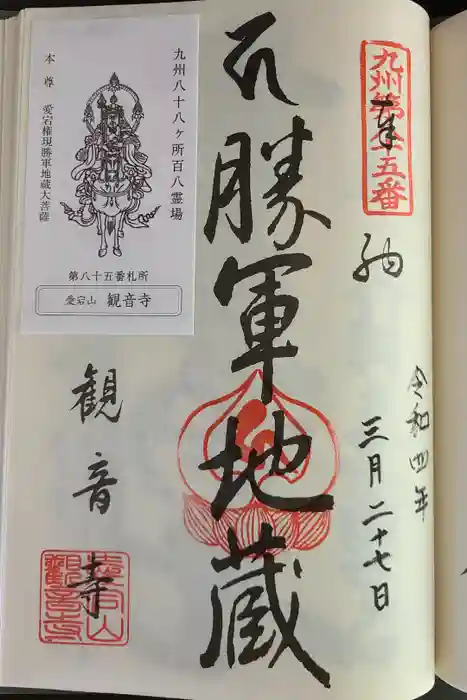 九州第八十五番
奉
納
令和四年
三月二十七日
勝軍地蔵
九州八十八ヶ所百八霊場
本尊 愛宕権現勝軍地蔵大菩薩
第八十五番札所
愛宕山 観音寺
観音寺
愛宕山
観音寺